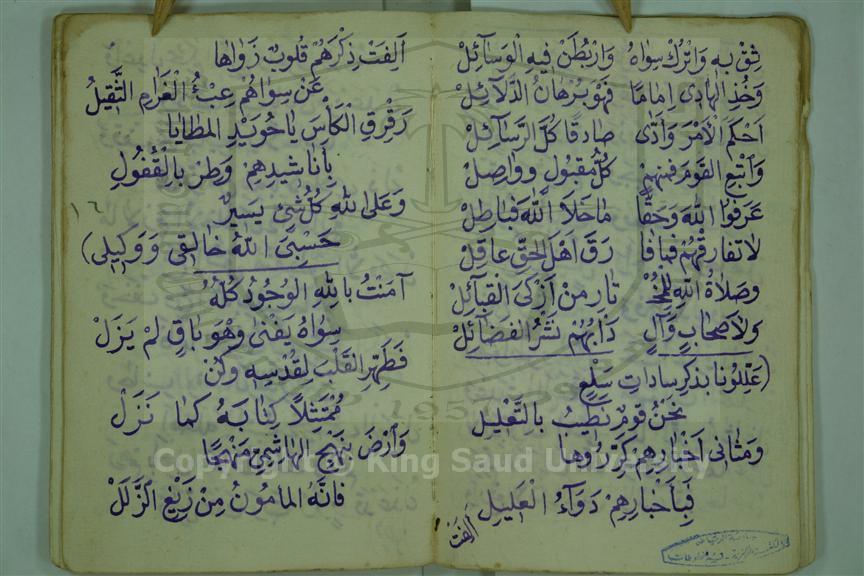 ثِقْ بِهِ وَاتْرُكْ سِوَاهُ وَارْبُطَنْ فِيهِ الْوَسَائِلْ
وَخُذِ الْهَادِى اِمَامًا فَهُوَ بُرْهَانُ الدَّلَائِلْ
اَحْكَمَ الْاَمْرَ وَاَدَّى صَادِقًا كُلَّ الرَّسَائِلْ
وَاتْبَعِ الْقَوْمَ فَمِنْهُمْ كُلُّ مَقْبُولٍ وَوَاصِلْ
عَرَفُوا اللّٰهَ وَحَقًّا مَاخَلَا اللّٰهَ فَبَاطِلْ
لَا تُفَارِقْهُمْ فَمَا فَا رَقَ اَهْلَ الْحَقِّ عَاقِلْ
وَصَلَاةُ اللّٰهِ لِلْمُخْـ تَارِ مِنْ اَزْكَى الْقَبَائِلْ
وَلِاَصْحَابٍ وَآلٍ دَأْبُهُمْ نَشْرُ الْفَضَائِلْ
(عَلِّلُونَا بِذِكْرِ سَادَاتِ سَلْعٍ
نَحْنُ قَوْمٌ نَطِيبُ بِالتَّعْلِيلِ
وَمَثَانِى اَخْبَارِهِمْ كَرِّرُوهَا
فَبِأَخْبَارِهِمْ دَوَآءُ الْعَلِيلِ
اَلِفَتْ
اَلِفَتْ ذِكْرَهُمْ قُلُوبٌ زَوَاهَا
عَنْ سِوَاهُمْ عِبْءُ الْغَرَامِ الثَّقِيلُ
رَقْرِقِ الْكَأْسَ يَا حُوَيْدِ الْمَطَايَا
بِأَنَاشِيدِهِمْ وَطِرْ بِالْقُفُولِ
وَعَلَى اللّٰهِ كُلُّ شَىْءٍ يَسِيرٌ
١٦
حَسْبِىَ اللّٰهُ خَالِقِى وَوَكِيلِى)
آمَنْتُ بِاللّٰهِ الْوُجُودُ كُلُّهُ
سِوَاهُ يَفْنَى وَهْوَ بَاقٍ لَمْ يَزَلْ
فَطَهِّرِ الْقَلْبَ لِقُدْسِهِ وَكُنْ
مُمْتَثِلًا كِتَابَهُ كَمَا نَزَلْ
وَارْضَ بِنَهْجِ الْهَاشِمِىِّ مَنْهَجًا
فَاِنَّهُ الْمَامُونُ مِنْ زَيْغِ الزَّلَلْ
Copyright © King Saud University
1957